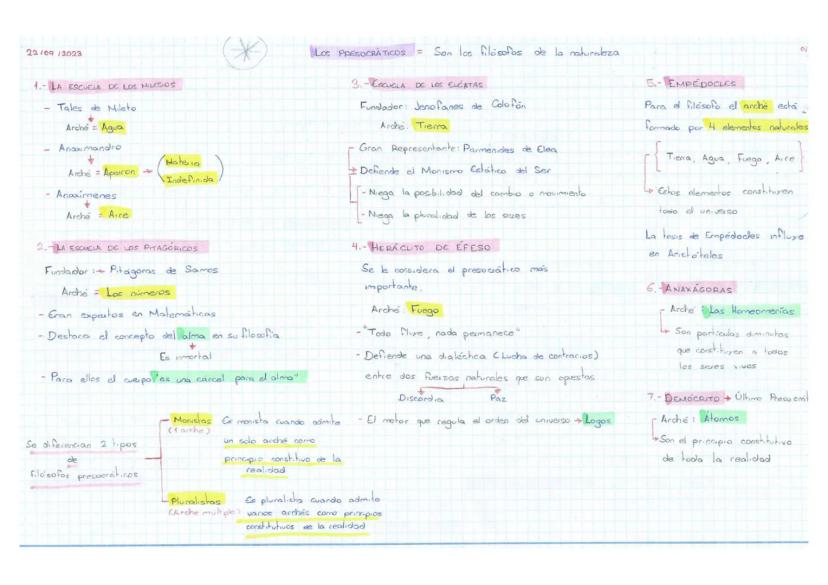 22/09/2023
LOS PRESOCRÁTICOS = Son los filósofos de la naturaleza
1.- LA ESCUELA DE LOS MILESIOS
- Tales de Mileto
Arché = Agua
- Anaximandro
Arché = Apeiron → (Materia
Indefinida)
- Anaxímenes
Arché = Aire
2.- LA ESCUELA DE LOS PITAGÓRICOS
Fundador: → Pitágoras de Samos
Arché = Los números
- Gran expertos en Matemáticas
- Destaca el concepto del alma en su filosofía
Es inmortal
- Para ellos el cuerpo "es una cárcel para el alma"
Se diferencian 2 tipos
de
filósofos presocráticos
Monistas
(1 arche)
Es monista cuando admite
un solo arché como
principio constitutivo de la
realidad
Pluralistas
(Arche multiple)
Es pluralista cuando admite
varios archés como principios
constitutivos de la realidad
3.- ESCUELA DE LOS ELÉATAS
Fundador: Jenofanes de Colofón
Arché: Tierra
Gran Representante: Parmenides de Elea
Defiende el Monismo Estático del Ser
- Niega la posibilidad del cambio o movimiento
- Niega la pluralidad de los seres
4.- HERÁCLITO DE ÉFESO
Se le considera el presocrático más
importante.
Arché: Fuego
- "Todo fluye, nada permanece"
- Defiende una dialéctica (Lucha de contrarios)
entre dos fuerzas naturales que son opuestas
Discordia Paz
- El motor que regula el orden del universo → Logos
5.- EMPÉDOCLES
Para el filósofo el arché está
formado por 4 elementos naturales
{ Tierra, Agua, Fuego, Aire }
Estos elementos constituyen
todo el universo
La tesis de Empédocles influye
en Aristóteles
6.- ANAXÁGORAS
Arche: Las Homeomerías
Son partículas diminutas
que constituyen a todos
los seres vivos
7.- DEMÓCRITO → Último
Arché: Átomos
Son el principio constitutivo
de toda la realidad